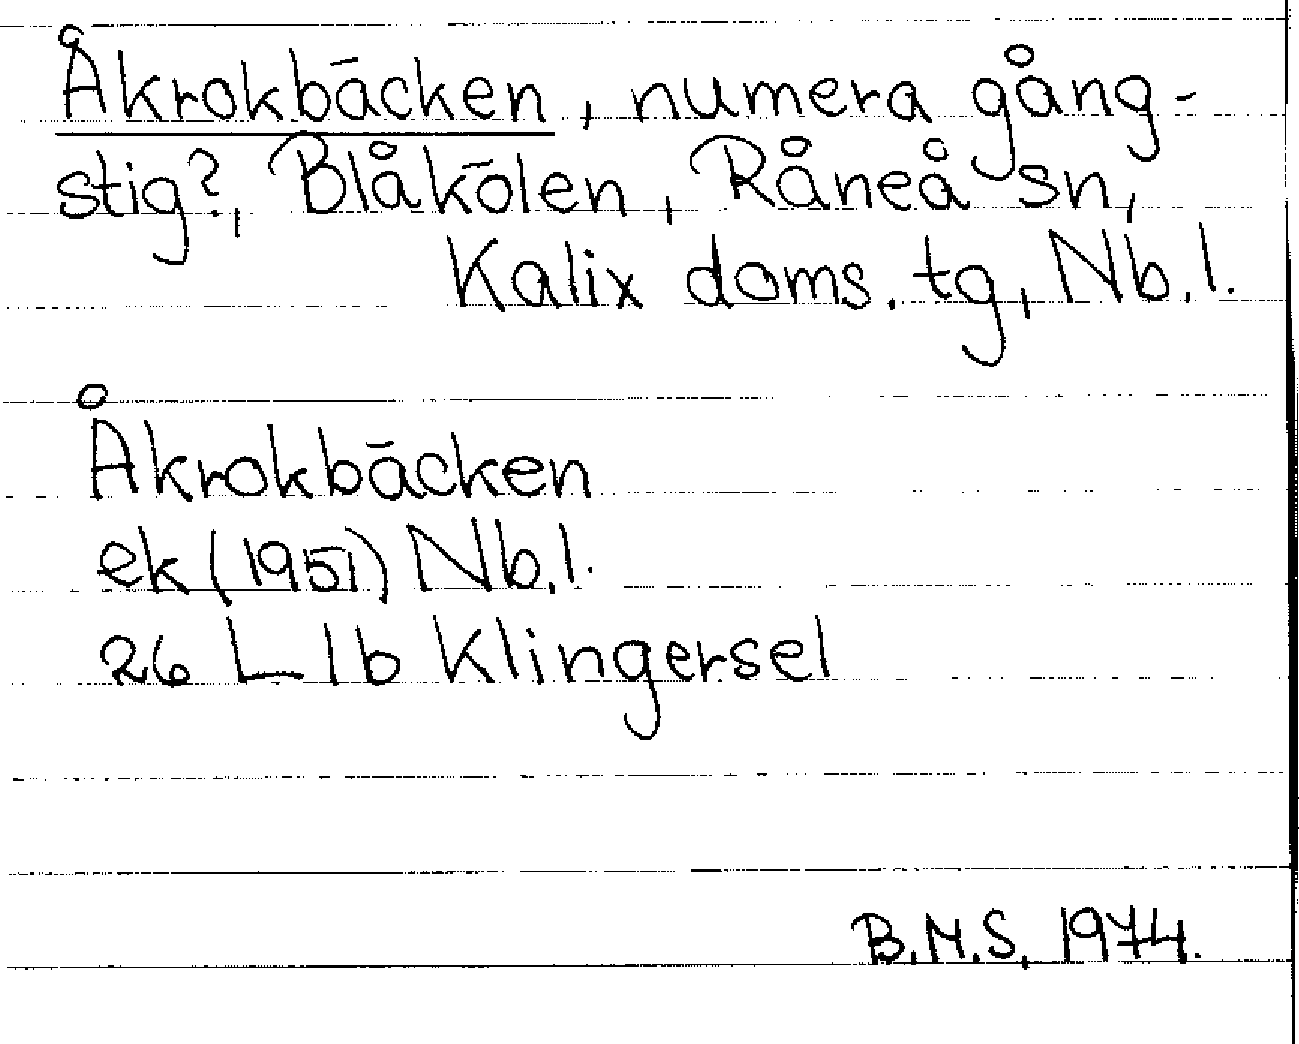 Åkrokbäcken, numera gång-
stig?, Blåkölen, Råneå sn,
Kalix doms. tg, Nb.l.
Åkrokbäcken
ek (1951) Nb.l.
26 L 1b Klingersel
B.M.S, 1974.